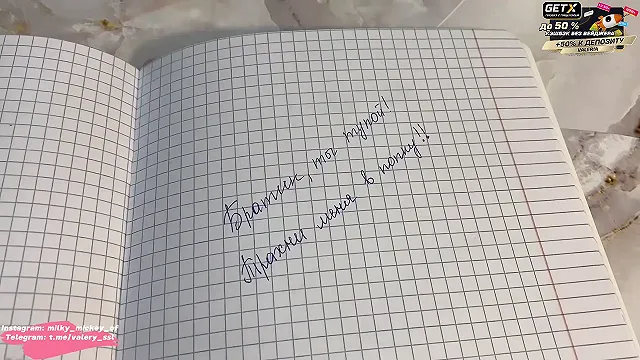 GETX
ДО 50 %
КЭШБЭК БЕЗ ВЕЙДЖЕРА
+50% К ДЕПОЗИТУ
VALERIA
Братик, ты тупой!
Трахни меня в попку!!
Instagram: milky_mickey_of
Telegram: t.me/valery_ssl